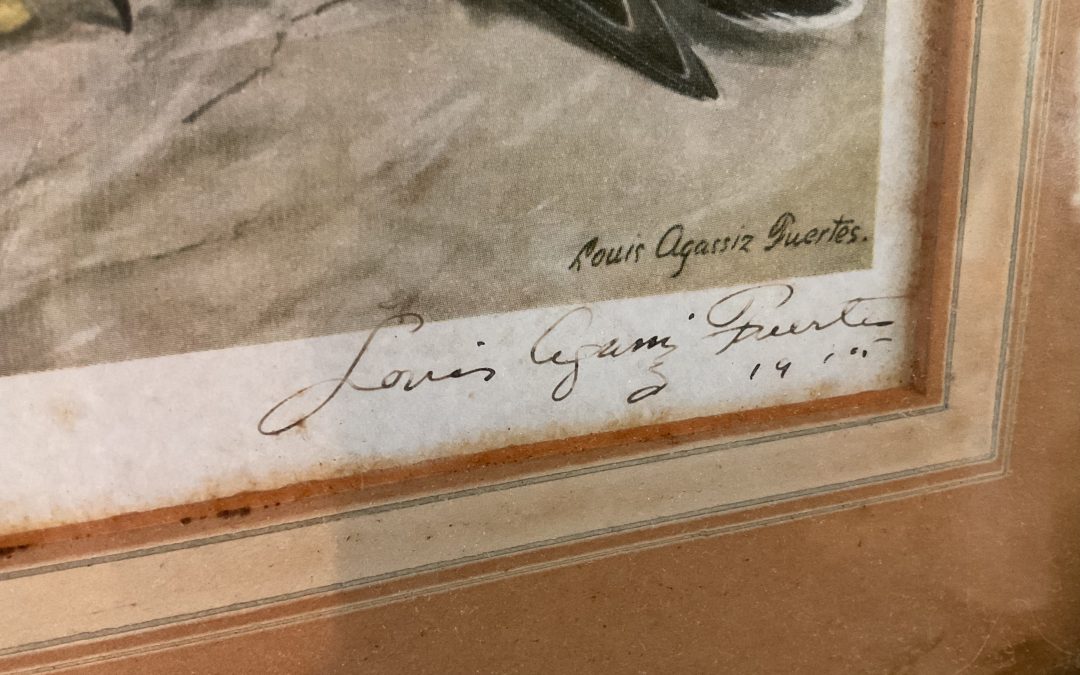 Louis Agassiz Fuertes.
Louis Agassiz Fuertes